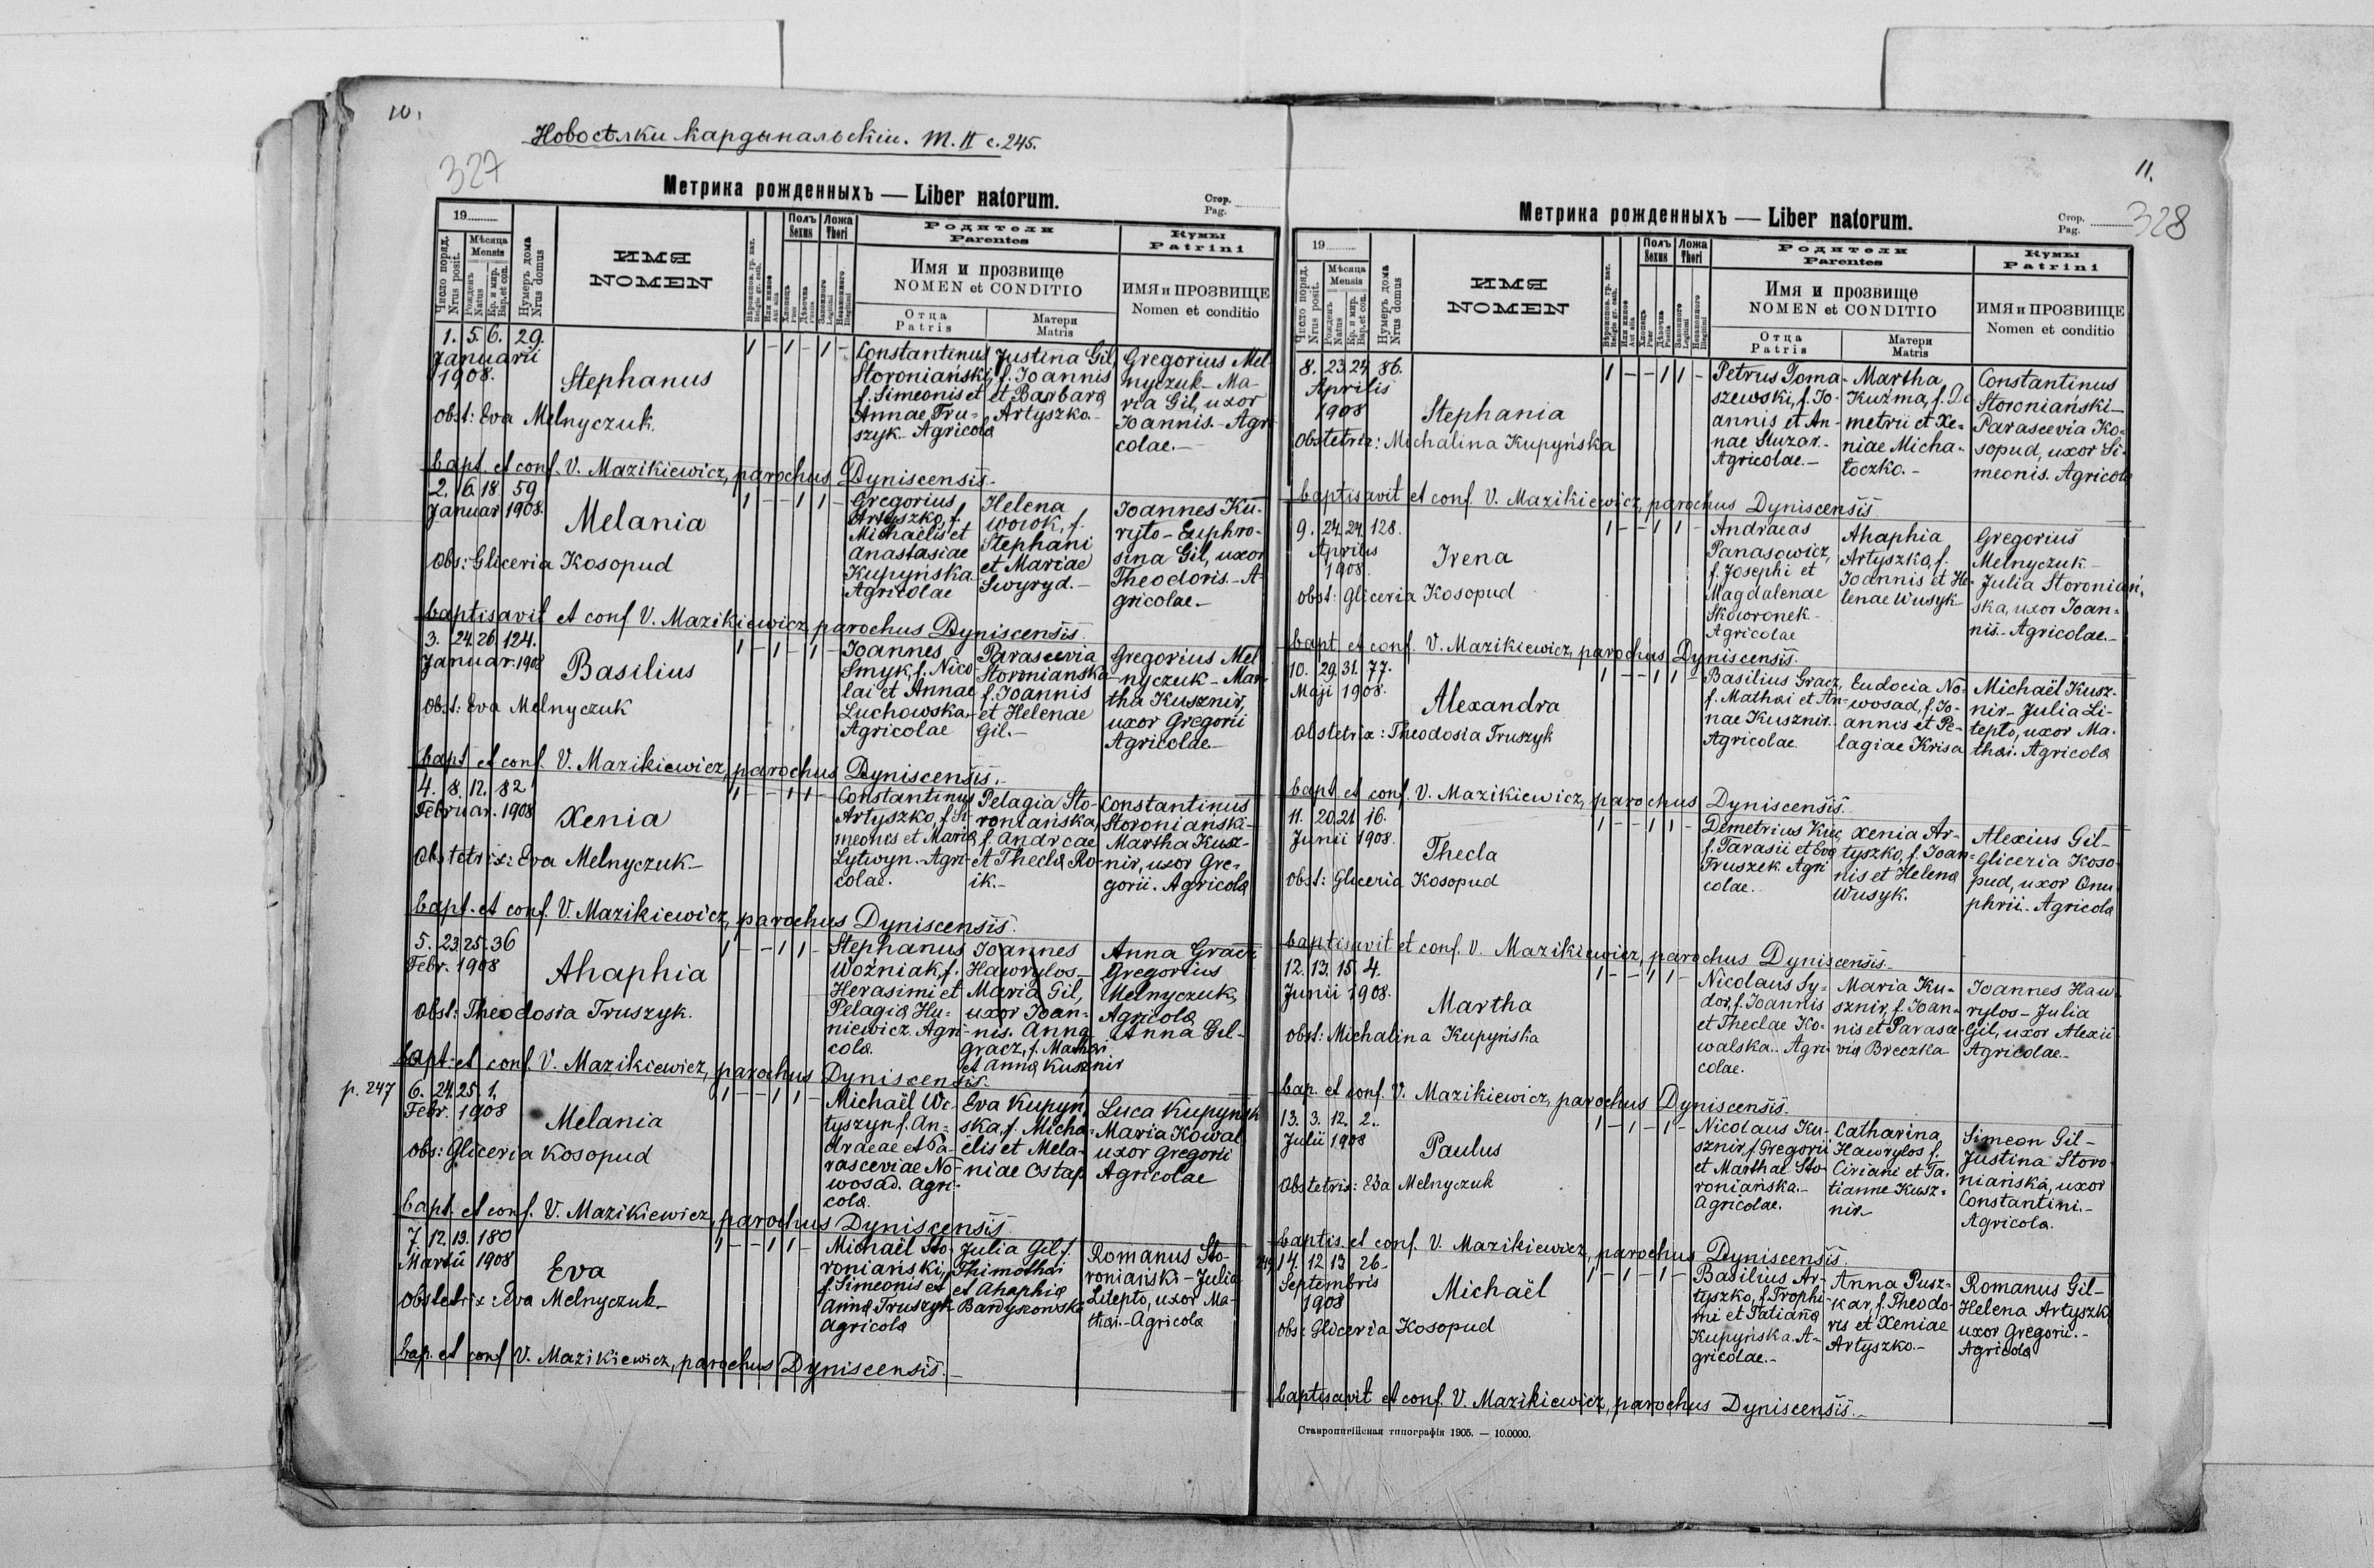 10.
Новосѣлки кардынальскіи. Т. II с. 245.
327
Метрика рожденныхъ — Liber natorum.
Стор.
Pag.
19
Число поряд.
Nrus posit.
Мѣсяца
Mensis
Рожденъ
Natus
Кр. и мир.
Bap. et con.
Нумеръ дома
Nrus domus
ИМЯ
NOMEN
Полъ
Sexus
Ложа
Thori
Родители
Parentes
Имя и прозвище
NOMEN et CONDITIO
Отца
Patris
Матери
Matris
Кумы
Patrini
ИМЯ и ПРОЗВИЩЕ
Nomen et conditio
1. 5. 6. 29.
Januarii
1908.
Stephanus
Obst: Eva Melnyczuk.
1 - 1 - 1 -
Constantinus
Storoniański,
f. Simeonis et
Annae Tru-
szyk. Agricola
Justina Gil,
f. Joannis
et Barbara
Artyszko.-
Gregorius Mel-
nyczuk - Ma-
ria Gil, uxor
Joannis. - Agri
colae. -
bapt. et conf. V. Mazikiewicz, parochus Dyniscensis.
2. 16. 18. 59
Januar 1908.
Melania
Obs: Gliceria Kosopud
1 - - 1 1 -
Gregorius
Artyszko, f.
Michaelis et
Anastasiae
Kupyńska.
Agricolae
Helena
Wowk, f.
Stephani
et Mariae
Swyryd. -
Joannes Ku-
ryto - Euphro-
sina Gil, uxor
Theodoris. - A-
gricolae. -
baptisavit et conf V. Mazikiewicz, parochus Dyniscensis.
3. 24. 26. 124.
Januar. 1908
Basilius
Obst: Eva Melnyczuk
1 - 1 - 1 -
Joannes
Smyk, f. Nico-
lai et Annae
Luchowska.-
Agricolae
Parascevia
Storoniańska
f. Joannis
et Helenae
Gil. -
Gregorius Mel
nyczuk - Mar-
tha Kusznir,
uxor Gregorii
Agricolae. -
bapt et conf. V. Mazikiewicz, parochus Dyniscensis.
4. 8. 12. 82
Februar. 1908
Xenia
Obstetrix: Eva Melnyczuk -
1 - - 1 1 -
Constantinus
Artyszko, f. Si-
meonis et Maria
Lytwyn. - Agri-
colae.
Pelagia Sto-
roniańska,
f. Andreae
et Thecla Ro-
ik. -
Constantinus
Storoniański -
Martha Kusz-
nir, uxor Gre-
gorii. Agricola
bapt. et conf. V. Mazikiewicz, parochus Dyniscensis.
5. 23. 25. 36
Febr. 1908
Ahaphia
Obst: Theodosia Truszyk.
1 - - 1 1 -
Stephanus
Woźniak, f.
Herasimi et
Pelagia Hu-
niewicz. Agri-
cola.
Joannes
Hawrylos -
Maria Gil,
uxor Joan-
nis. Anna
Gracz, f. Mathei
et Anna Kusznir
Anna Gracz
Gregorius
Melnyczuk,
Agricola
Anna Gil -
bapt. et conf. V. Mazikiewicz, parochus Dyniscensis.
p. 247
6. 24. 25. 1.
Febr. 1908
Melania
Obs: Gliceria Kosopud
1 - - 1 1 -
Michaël Wo-
tyszyn f. An-
dreae et Pa-
rasceviae No-
wosad. Agri-
cola.
Eva Kupyń
ska, f. Micha-
ëlis et Mela-
niae Ostap
Luca Kupyńsk
Maria Kowal
uxor Gregorii
Agricolae
bapt. et conf. V. Mazikiewicz, parochus Dyniscensis
7. 12. 13. 180
Martii 1908
Eva
Obstetrix: Eva Melnyczuk -
1 - - 1 1 -
Michaël Sto-
roniański,
f. Simeonis et
Anna Truszyk
Agricola
Julia Gil f.
Thimothei
et Ahaphia
Bardyszowska
Romanus Sto-
roniański - Julia
Litepto, uxor Ma-
thei. - Agricola
bap. et conf V. Mazikiewicz, parochus Dyniscensis. -
11.
328
Метрика рожденныхъ — Liber natorum.
Стор.
Pag.
19
Число поряд.
Nrus posit.
Мѣсяца
Mensis
Рожденъ
Natus
Кр. и мир.
Bap. et con.
Нумеръ дома
Nrus domus
ИМЯ
NOMEN
Полъ
Sexus
Ложа
Thori
Родители
Parentes
Имя и прозвище
NOMEN et CONDITIO
Отца
Patris
Матери
Matris
Кумы
Patrini
ИМЯ и ПРОЗВИЩЕ
Nomen et conditio
8. 23. 24. 86.
Aprilis
1908
Stephania
Obstetrix: Michalina Kupyńska
1 - - 1 1 -
Petrus Toma-
szewski, f. Jo-
annis et An-
nae Sluzar. -
Agricolae. -
Martha
Kuzma, f. De
metrii et Xe-
niae Micha-
łoczko. -
Constantinus
Storoniański -
Parascevia Ko-
sopud, uxor Si-
meonis. Agricola
baptisavit et conf. V. Mazikiewicz, parochus Dyniscensis
9. 24. 24. 128.
Aprilis
1908.
Irena
Obst: Gliceria Kosopud
1 - - 1 1 -
Andraeas
Panasowicz,
f. Josephi et
Magdalenae
Skowronek. -
Agricolae
Ahaphia
Artyszko, f.
Joannis et He-
lenae Wusyk -
Gregorius
Melnyczuk -
Julia Storoniań-
ska, uxor Joan-
nis. - Agricolae. -
bapt. et conf. V. Mazikiewicz, parochus Dyniscensis.
10. 29. 31. 77.
Maji 1908.
Alexandra
Obstetrix: Theodosia Truszyk
1 - - 1 1 -
Basilius Gracz,
f. Mathei et An-
nae Kusznir. -
Agricolae.
Eudocia No-
wosad, f. Jo-
annis et Pe-
lagiae Krisa
Michaël Kusz-
nir - Julia Li-
tepto, uxor Ma-
thei. Agricola
bapt. et conf. V. Mazikiewicz, parochus Dyniscensis.
11. 20. 21. 16.
Junii 1908.
Thecla
Obst: Gliceria Kosopud
1 - - 1 1 -
Demetrius Kuc,
f. Tarasii et Eva
Truszek. Agri
colae.
Xenia Ar-
tyszko, f. Joan-
nis et Helena
Wusyk.
Alexius Gil -
Gliceria Koso-
pud, uxor Onu-
phrii. - Agricola
baptisavit et conf. V. Mazikiewicz, parochus Dyniscensis. -
12. 13. 15. 4.
Junii 1908.
Martha
Obst: Michalina Kupyńska
1 - - 1 1 -
Nicolaus Sy-
dor, f. Joannis
et Theclae Ko-
walska. - Agri-
colae.
Maria Ku-
sznir, f. Joan-
nis et Parasce-
via Breczka
Joannes Haw-
rylos - Julia
Gil, uxor Alexii
Agricolae. -
bap. et conf. V. Mazikiewicz, parochus Dyniscensis.
13. 3. 12. 2.
Julii 1908
Paulus
Obstetrix: Eva Melnyczuk
1 - 1 - 1 -
Nicolaus Ku-
sznir, f. Gregorii
et Marthae Sto-
roniańska. -
Agricolae.
Catharina
Hawrylos f.
Ciriani et Ta-
tianne Kusz-
nir
Simeon Gil -
Justina Storo-
niańska, uxor
Constantini. -
Agricola.
baptis. et conf. V. Mazikiewicz, parochus Dyniscensis.
249
14. 12 13 26 -
Septembris
1908
Michaël
Obs: Gliceria Kosopud
1 - 1 - 1 -
Basilius Ar-
tyszko, f. Trophi-
mi et Tatiana
Kupyńska. A-
gricolae. -
Anna Pusz-
kar, f. Theodo-
ris et Xeniae
Artyszko. -
Romanus Gil -
Helena Artyszk
uxor Gregorii. -
Agricola
baptisavit et conf. V. Mazikiewicz, parochus Dyniscensis. -
Ставропигійская типографія 1905. — 10.0000.